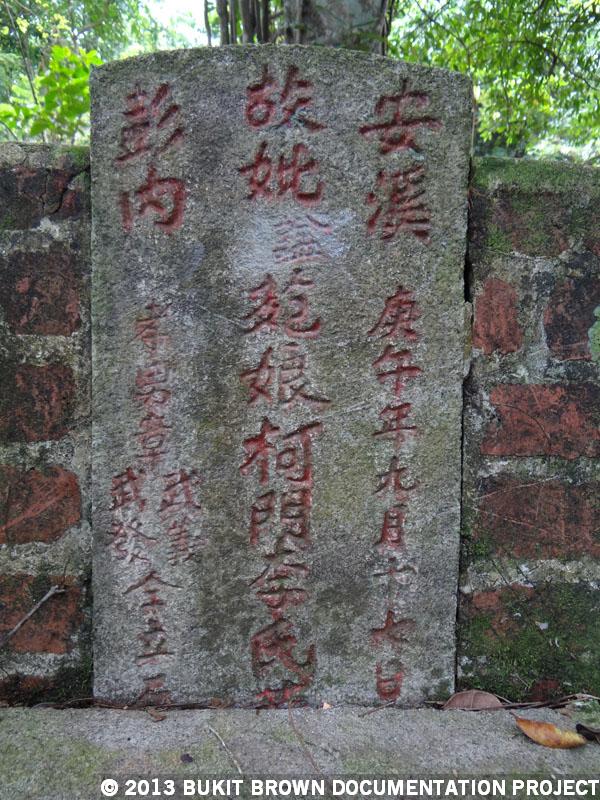 安溪
庚午年九月十七日
故妣謚苑娘柯門李氏墓
彭内
孝男章
武義
武發
仝立石
© 2013 BUKIT BROWN DOCUMENTATION PROJECT